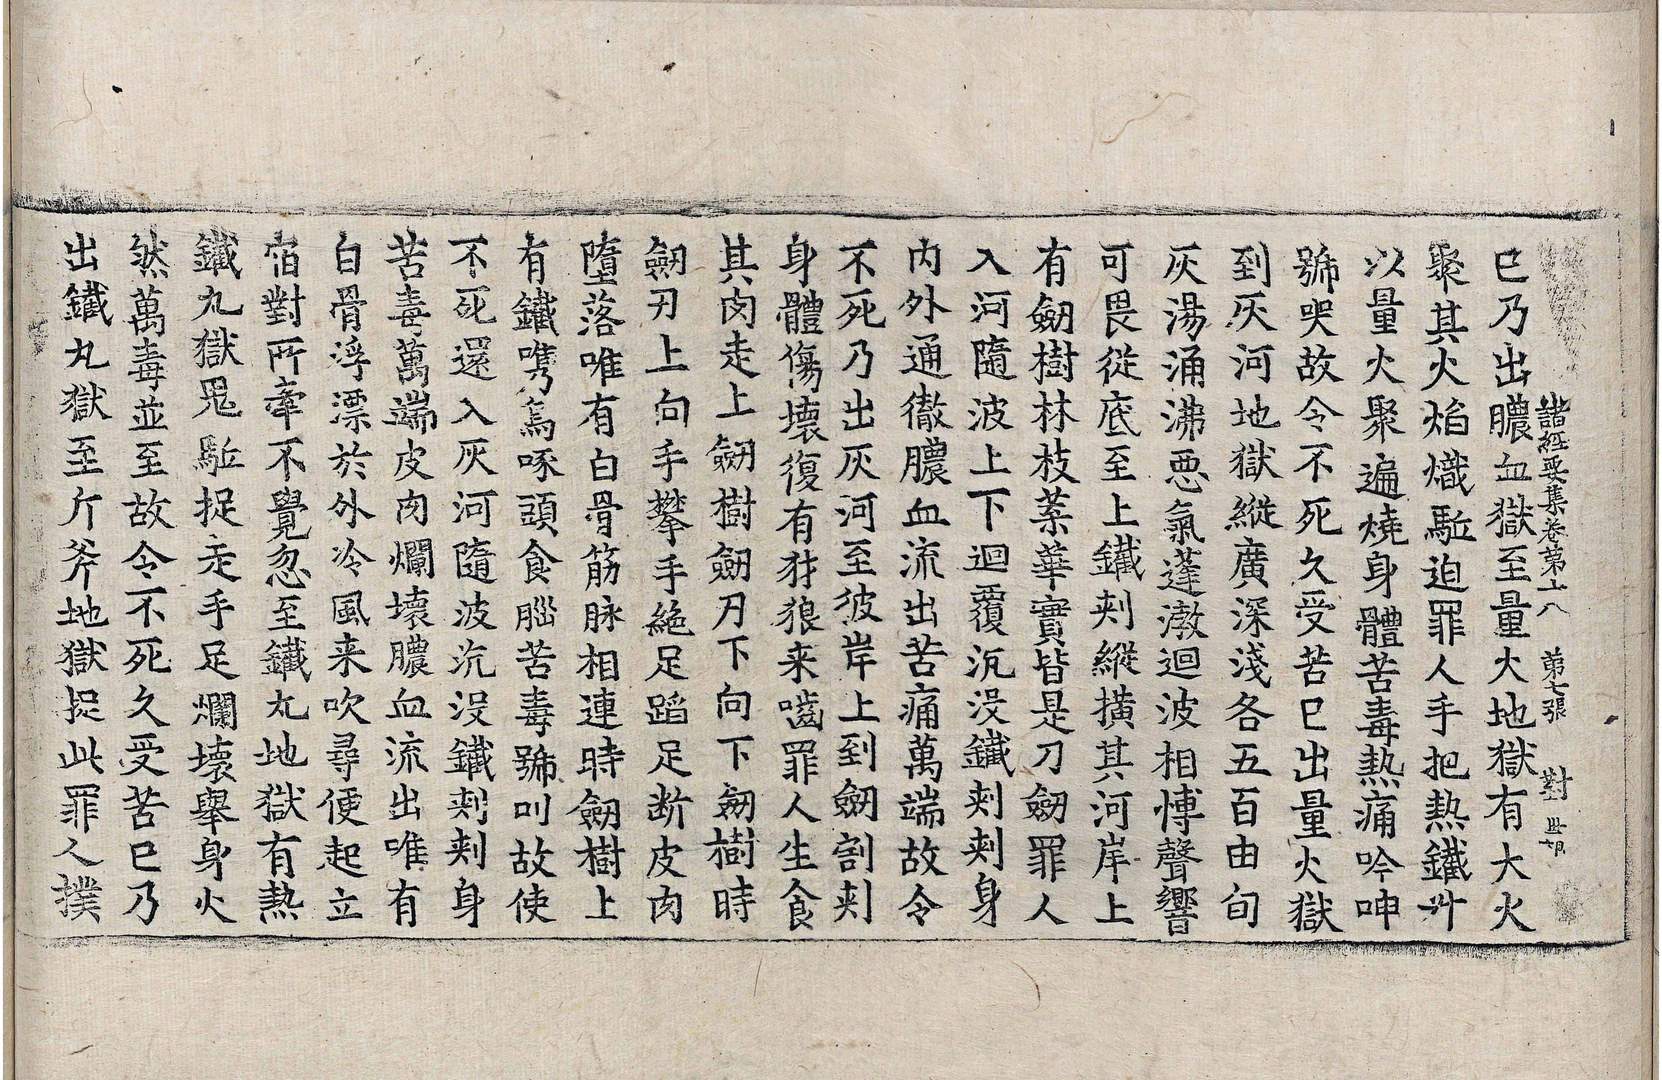 諸經要集卷第十八 第七張 對
已乃出膿血獄至量火地獄有大火
聚其火焰熾駈迫罪人手把熱鐵升
以量火聚遍燒身體苦毒熱痛吟呻
號哭故令不死久受苦已出量火獄
到灰河地獄縱廣深淺各五百由旬
灰湯涌沸惡氣蓬㶿迴波相愽聲響
可畏從底至上鐵刺縱撗其河岸上
有劒樹林枝葉華實皆是刀劒罪人
入河隨波上下迴覆沉没鐵刺刺身
内外通徹膿血流出苦痛萬端故令
不死乃出灰河至彼岸上到劒割刺
身體傷壞復有犲狼来嚙罪人生食
其肉走上劒樹劒刀下向下劒樹時
劒刃上向手攀手絶足蹈足断皮肉
墮落唯有白骨筋脉相連時劒樹上
有鐵㭰鳥啄頭食腦苦毒號叫故使
不死還入灰河隨波沉没鐵刺刺身
苦毒萬端皮肉爛壞膿血流出唯有
白骨浮漂於外冷風来吹尋便起立
宿對所牽不覺忽至鐵丸地獄有熱
鐵丸獄鬼駈捉走手足爛壞舉身火
然萬毒並至故令不死久受苦已乃
出鐵丸獄至斤斧地獄捉此罪人撲